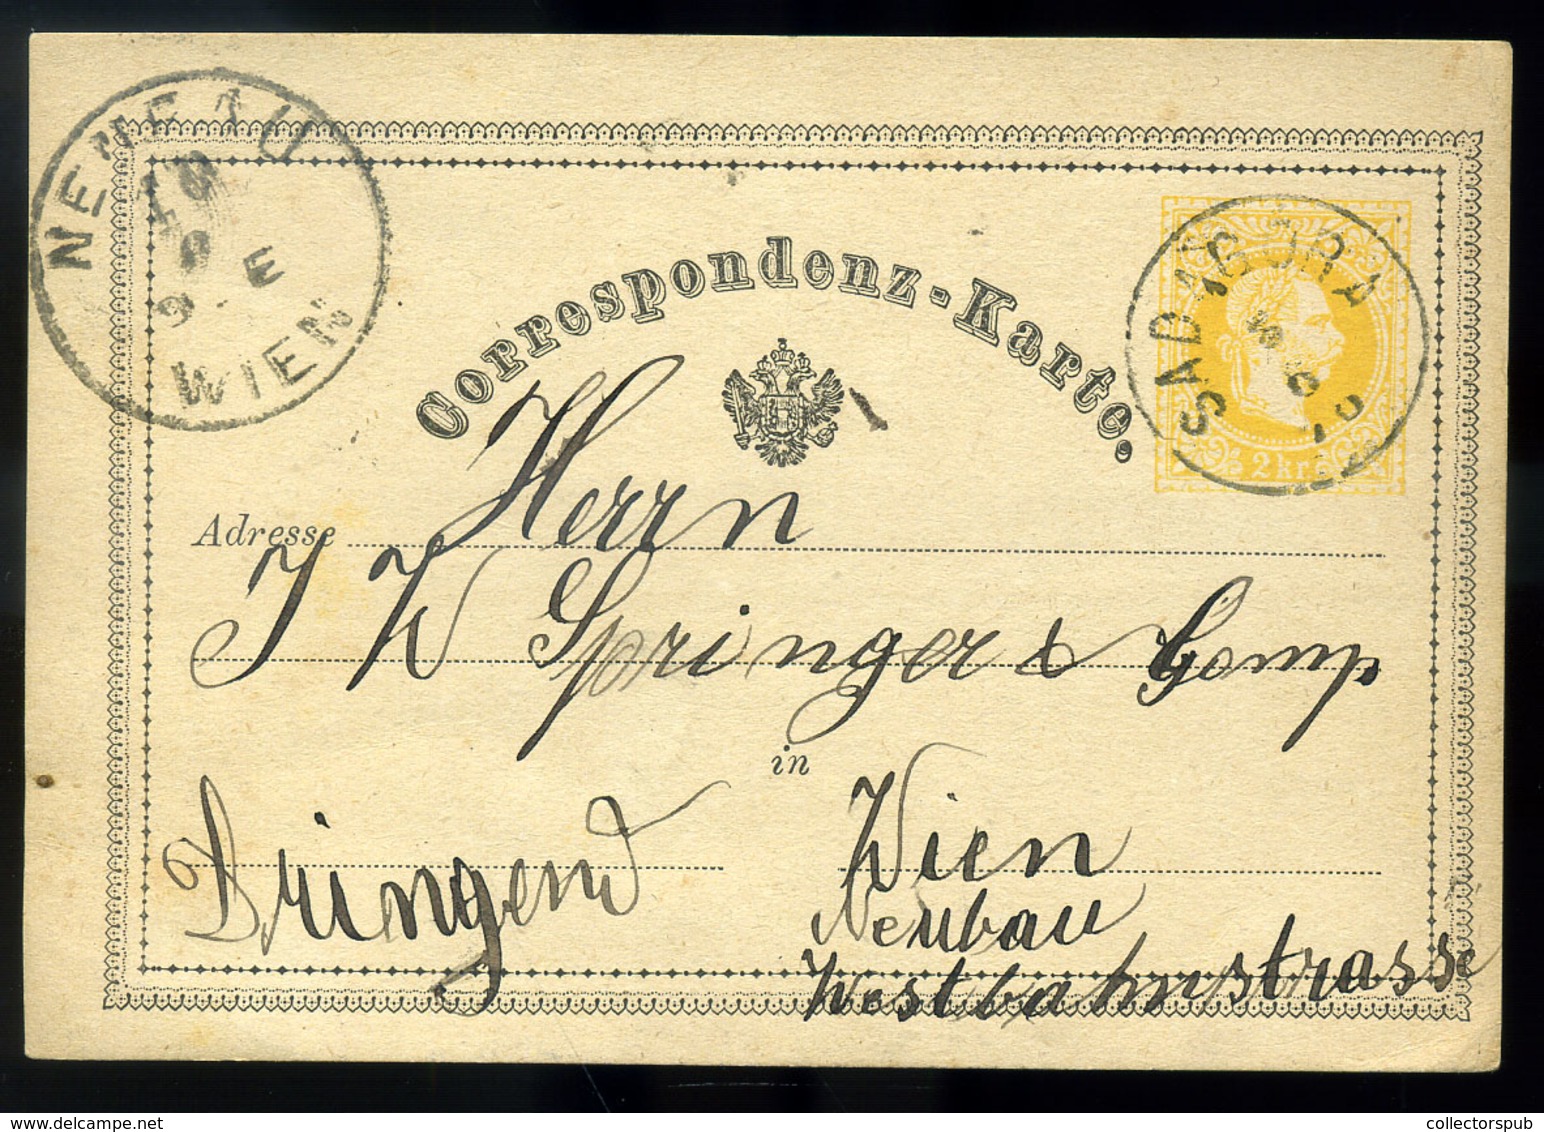 NEUBAU
WIEN
18
9
9. E
Correspondenz-Karte.
SADAGÓRA
2 kr
Adresse
Herrn
J W Springer & Comp
in
Dringend
Wien
Neubau
Westbahnstrasse
collectorspub